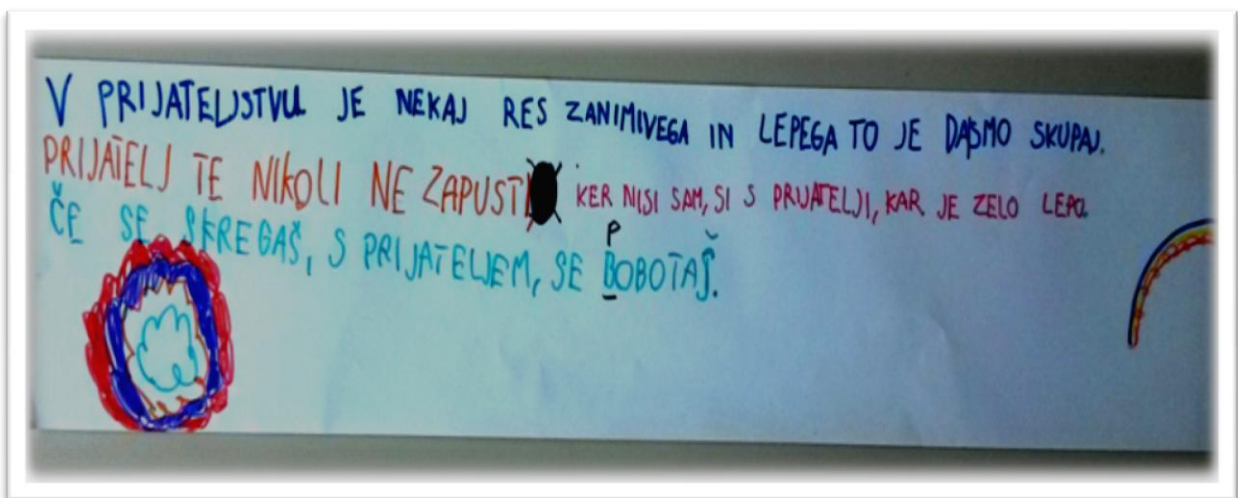 V PRIJATELJSTVU JE NEKAJ RES ZANIMIVEGA IN LEPEGA TO JE DA SMO SKUPAJ.
PRIJATELJ TE NIKOLI NE ZAPUSTI KER NISI SAM, SI S PRIJATELJI, KAR JE ZELO LEPO.
P
ČE SE SKREGAŠ, S PRIJATELJEM, SE BOBOTAŠ.